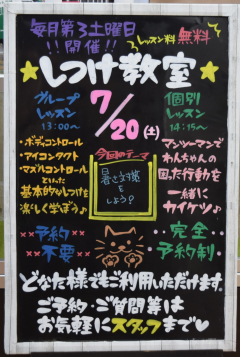 毎月第3土曜日
!!開催!!
レッスン料 無料
★しつけ教室★
グループ
レッスン
13:00〜
7/20(土)
個別
レッスン
14:15〜
・ボディコントロール
・アイコンタクト
・マズルコントロール
といった
基本的なしつけを
楽しく学ぼう♪
今回のテーマ
暑さ対策
を
しよう?
マンツーマンで
わんちゃんの
困った行動を
一緒に
カイケツ♪
予約
不要
完全
予約制
どなた様でもご利用いただけます。
ご予約・ご質問等は
お気軽にスタッフまで♡